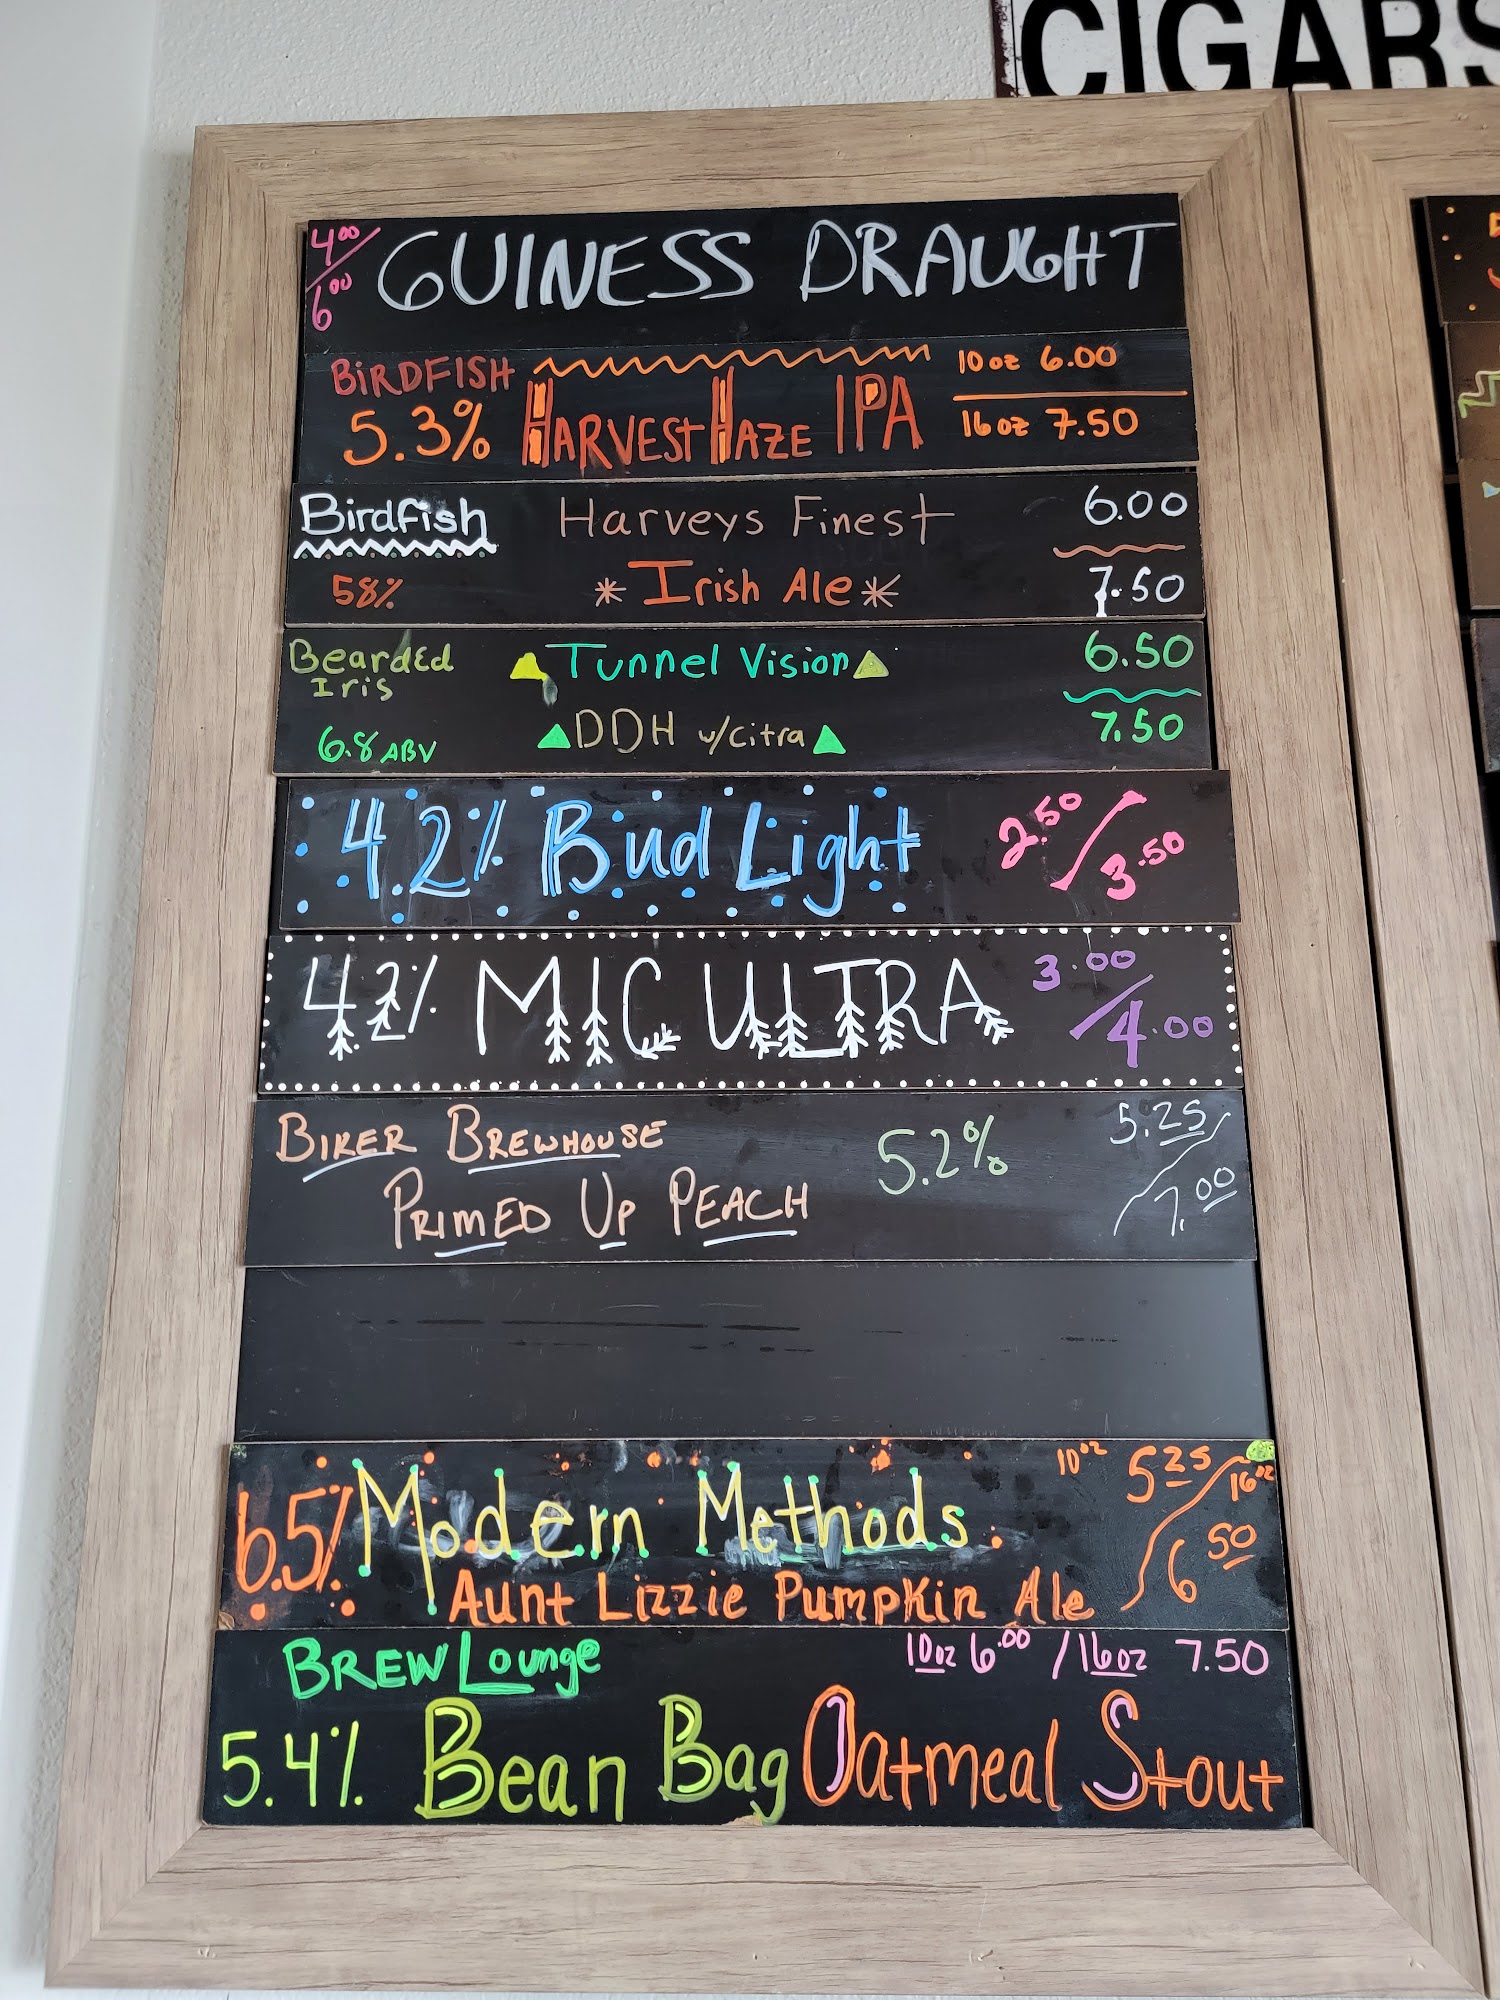 CIGARS
4.00/6.00 GUINESS DRAUGHT
BIRDFISH
5.3% HARVEST HAZE IPA
10oz 6.00
16oz 7.50
Birdfish Harveys Finest 6.00
58% * Irish Ale * 7.50
Bearded Iris Tunnel Vision 6.50
6.8 ABV DDH w/citra 7.50
4.2% Bud Light 2.50/3.50
42% MIC ULTRA 3.00/4.00
BIKER BREWHOUSE 5.2% 5.25/7.00
PRIMED UP PEACH
6.5% Modern Methods 10oz 5.25/16oz 6.50
Aunt Lizzie Pumpkin Ale
BREW Lounge 10oz 6.00 / 16oz 7.50
5.4% Bean Bag Oatmeal Stout